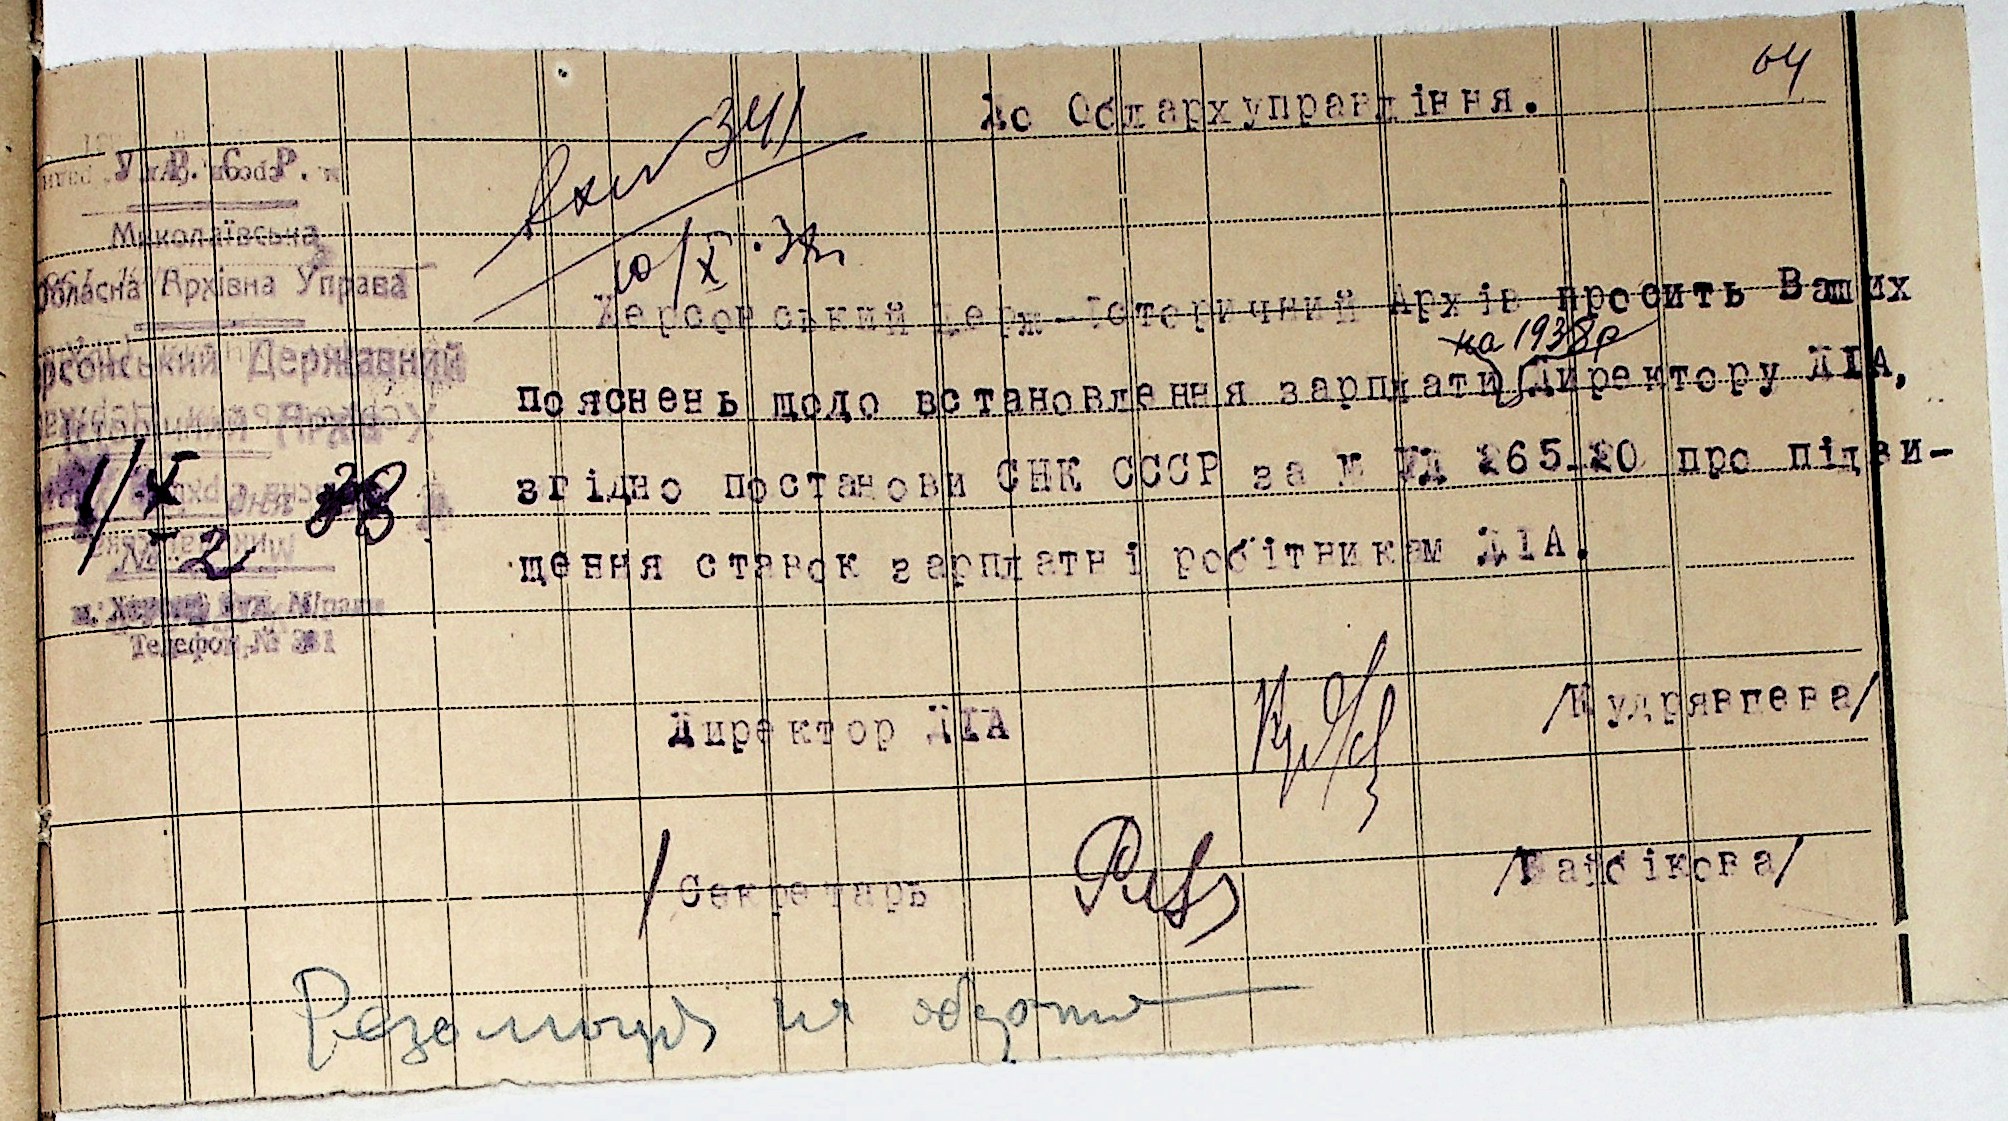 64
До Облархуправління.
Вхі № 341
10/X.38р
У. Р. С. Р.
Миколаївська
Обласна Архівна Управа
рсонський Державний
1/X 38
№ 2
м. Херсон, вул.
Телефон № 381
Херсонський Держ-Історичний Архів просить Ваших
на 1938р
пояснень щодо встановлення зарплати Директору ДІА,
згідно постанови СНК СССР за № УД 265-20 про підви-
щення ставок зарплатні робітникам ДІА.
Директор ДІА /Кудрявцева/
/Секретарь /Байбікова/
Резолюція на обороті